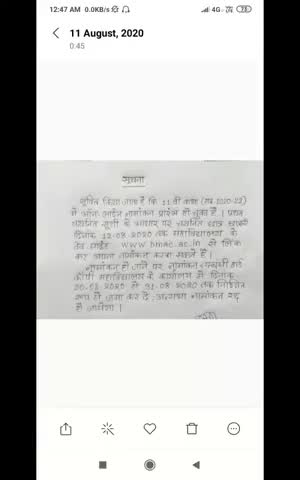 12:47 AM 0.0KB/s
4G 73
11 August, 2020
0:45
सूचना
सूचित किया जाता है कि 11 वीं कक्षा (सत्र 2020-22)
में ऑन लाईन नामांकन प्रारंभ हो चुका है। प्रथम
चयनित सूची के आधार पर चयनित छात्र
दिनांक 12-08-2020 तक महाविद्यालय के
वेव साईड www.bmac.ac.in से लिंक
कर अपना नामांकन करवा सकते हैं।
नामांकन हो जाने पर नामांकन
कॉपी महाविद्यालय के कार्यालय में दिनांक
20-08-2020 से 31-08-2020 तक निश्चित
रूप से जमा कर दें, अन्यथा नामांकन रद्द
हो जायेगा।